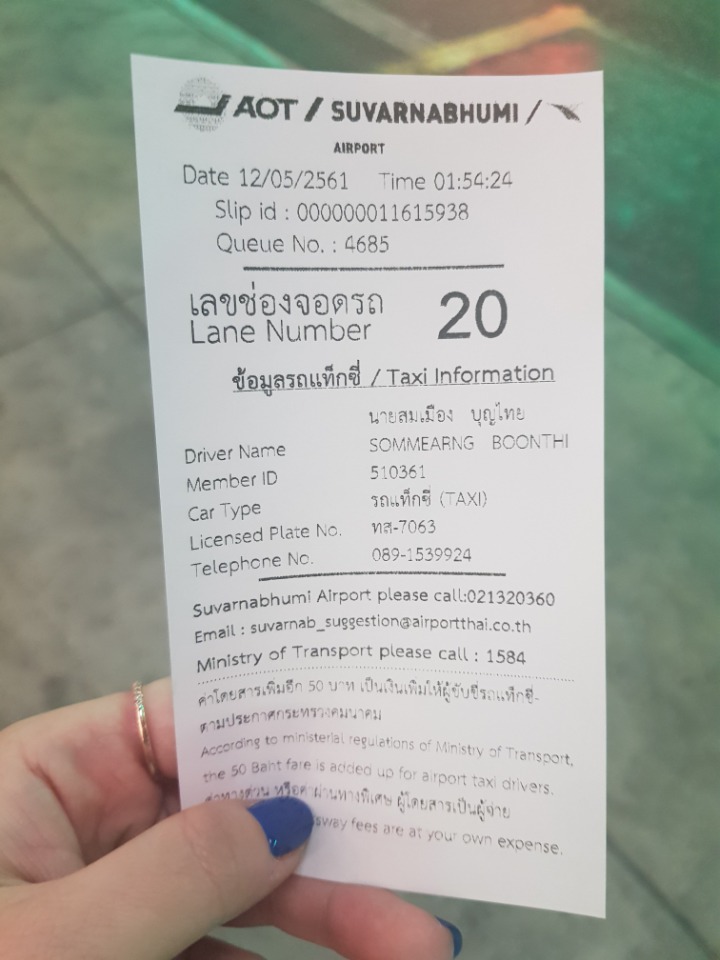 AOT / SUVARNABHUMI /
AIRPORT
Date 12/05/2561 Time 01:54:24
Slip id : 000000011615938
Queue No. : 4685
เลขช่องจอดรถ
Lane Number 20
ข้อมูลรถแท็กซี่ / Taxi Information
นายสมเมือง บุญไทย
Driver Name SOMMEARNG BOONTHI
Member ID 510361
Car Type รถแท็กซี่ (TAXI)
Licensed Plate No. ทส-7063
Telephone No. 089-1539924
Suvarnabhumi Airport please call:021320360
Email : suvarnab_suggestion@airportthai.co.th
Ministry of Transport please call : 1584
ค่าโดยสารเพิ่มอีก 50 บาท เป็นเงินเพิ่มให้ผู้ขับขี่รถแท็กซี่-
ตามประกาศกระทรวงคมนาคม
According to ministerial regulations of Ministry of Transport,
the 50 Baht fare is added up for airport taxi drivers.
ค่าทางด่วน หรือค่าผ่านทางพิเศษ ผู้โดยสารเป็นผู้จ่าย
fees are at your own expense.